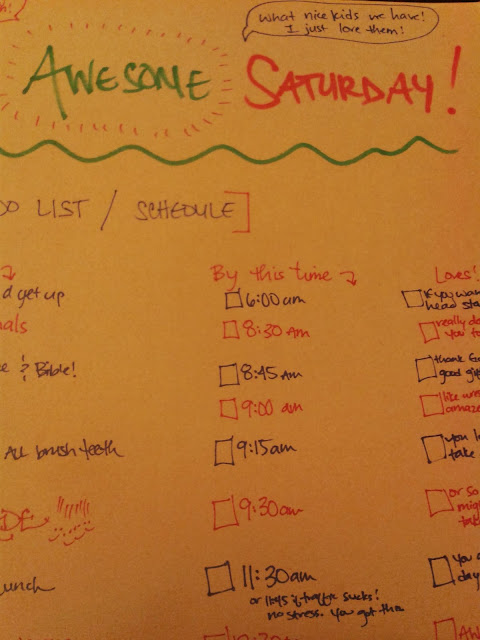 h!
What nice kids we have!
I just love them!
AWESOME SATURDAY!
DO LIST / SCHEDULE]
By this time
Loves!
d get up
6:00 am
if you wan
head sta
als
8:30 Am
really do
you to
e & Bible!
8:45 Am
thank Go
good gif
9:00 am
like
amaze
ALL brush teeth
9:15am
you
take
DE
9:30am
or so
mig
tak
unch
11:30am
you
day
or 11:45 if traffic sucks!
no stress. You got this
10:30
AW